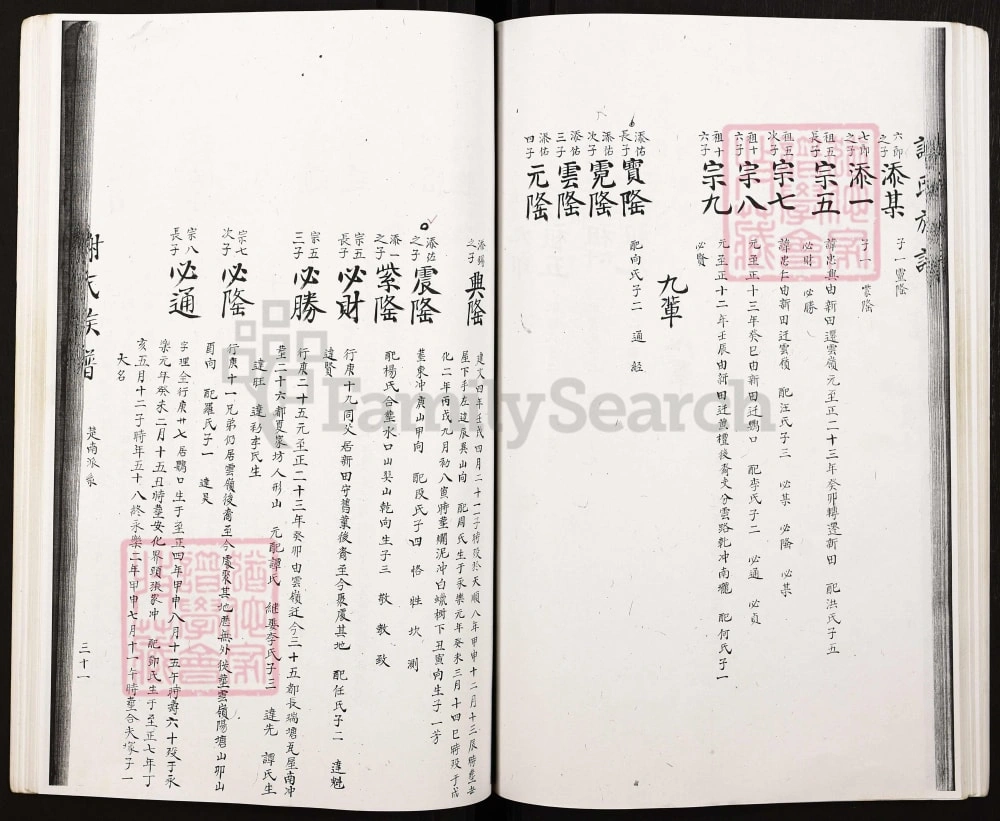 謝氏族譜
六郎之子 添某 子一 靈隆
七郎之子 添一 子一 紫隆
祖五長子 宗五 諱忠興由新田還雲嶺元至正二十三年癸卯轉遷新田 配洪氏子五
必財 必勝
祖五次子 宗七 諱忠仁由新田迁雲嶺 配汪氏子三 必某 必隆 必某
祖十六子 宗八 元至正十三年癸巳由新田迁鸚口 配李氏子二 必通 必貞
祖十六子 宗九 元至正十二年壬辰由新田迁 後裔支分雲路乾冲南壠 配何氏子一
必賢
九輩
添佑長子 寳隆 配向氏子二 通 経
添佑次子 霓隆
添佑三子 雲隆
添佑四子 元隆
添錫之子 興隆 建文四年壬戌四月二十一子時殁於天順八年甲申十二月十三辰時葬
屋下手左边辰巽山向 配周氏生于永樂元年癸未三月十四巳時殁于成
化二年丙戌九月初八寅時葬爛泥冲白蠟樹下丑寅向生子一芳
添佑之子 震隆 葬東冲庚山甲向 配段氏子四 恪 牲 坎 測
添一之子 紫隆 配楊氏合葬水口山巽山乾向生子三 敬 敦 致
宗五長子 必財 行庚十九同父居新田守舊業後裔至今聚處其地 配任氏子二 達魁
達賢
宗五三子 必勝 行庚二十五元至正二十三年癸卯由雲嶺迁今三十五都長瑞塘瓦屋南冲
葬二十六都夏家坊人形山 元配譚氏 継娶李氏子三 達先 譚氏生
達旺 達彩李氏生
宗七次子 必隆 行庚十一兄弟仍居雲嶺後裔至今處聚其地歷無外徙葬雲嶺陽塘山卯山
酉向 配羅氏子一 達吴
宗八長子 必通 字理全行庚廿七居鸚口生于至正四年甲申八月十五午時壽六十殁于永
樂元年癸未二月十五丑時葬安化界頭張家冲 配郭氏生于至正七年丁
亥五月十二子時年五十八終永樂二年甲申七月十一午時葬合夫塚子一
大名
謝氏族譜
楚南派系
三十一